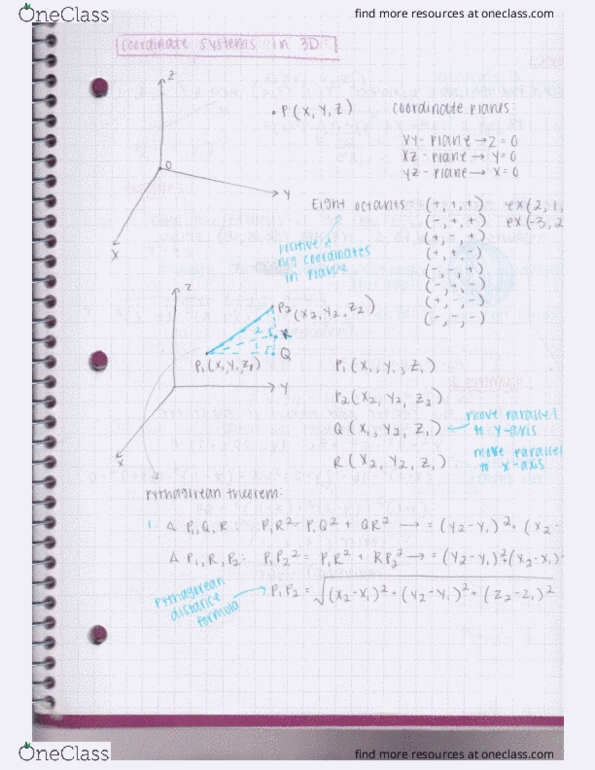 OneClass
find more resources at oneclass.com
coordinate systems in 3D
Z
• P(X,Y,Z)
coordinate planes:
XY-Plane → Z=0
XZ-Plane → Y=0
YZ-Plane → X=0
O
Y
X
Eight octants
(+,+,+) ex(2,1,
(-,+,+) ex(-3,2
(+,-,+)
(+,+,-)
(-,-,+)
(-,+,-)
(+,-,-)
(-,-,-)
positive &
neg coordinates
in plane
Z
P2(X2,Y2,Z2)
R
2
1
Q
P1(X1,Y1,Z1)
Y
X
P1(X1,Y1,Z1)
P2(X2,Y2,Z2)
Q(X1,Y2,Z1)
move parallel
to y-axis
R(X2,Y2,Z1)
move parallel
to x-axis
Pythagorean theorem:
1. Δ P1,Q,R: P1R² = P1Q² + QR² → = (Y2-Y1)² + (X2-
Δ P1,R,P2: P1P2² = P1R² + RP2² → = (Y2-Y1)²+(X2-X1)
Pythagorean
distance
formula
P1P2 = √(X2-X1)² + (Y2-Y1)² + (Z2-Z1)²
OneClass
find more resources at oneclass.com